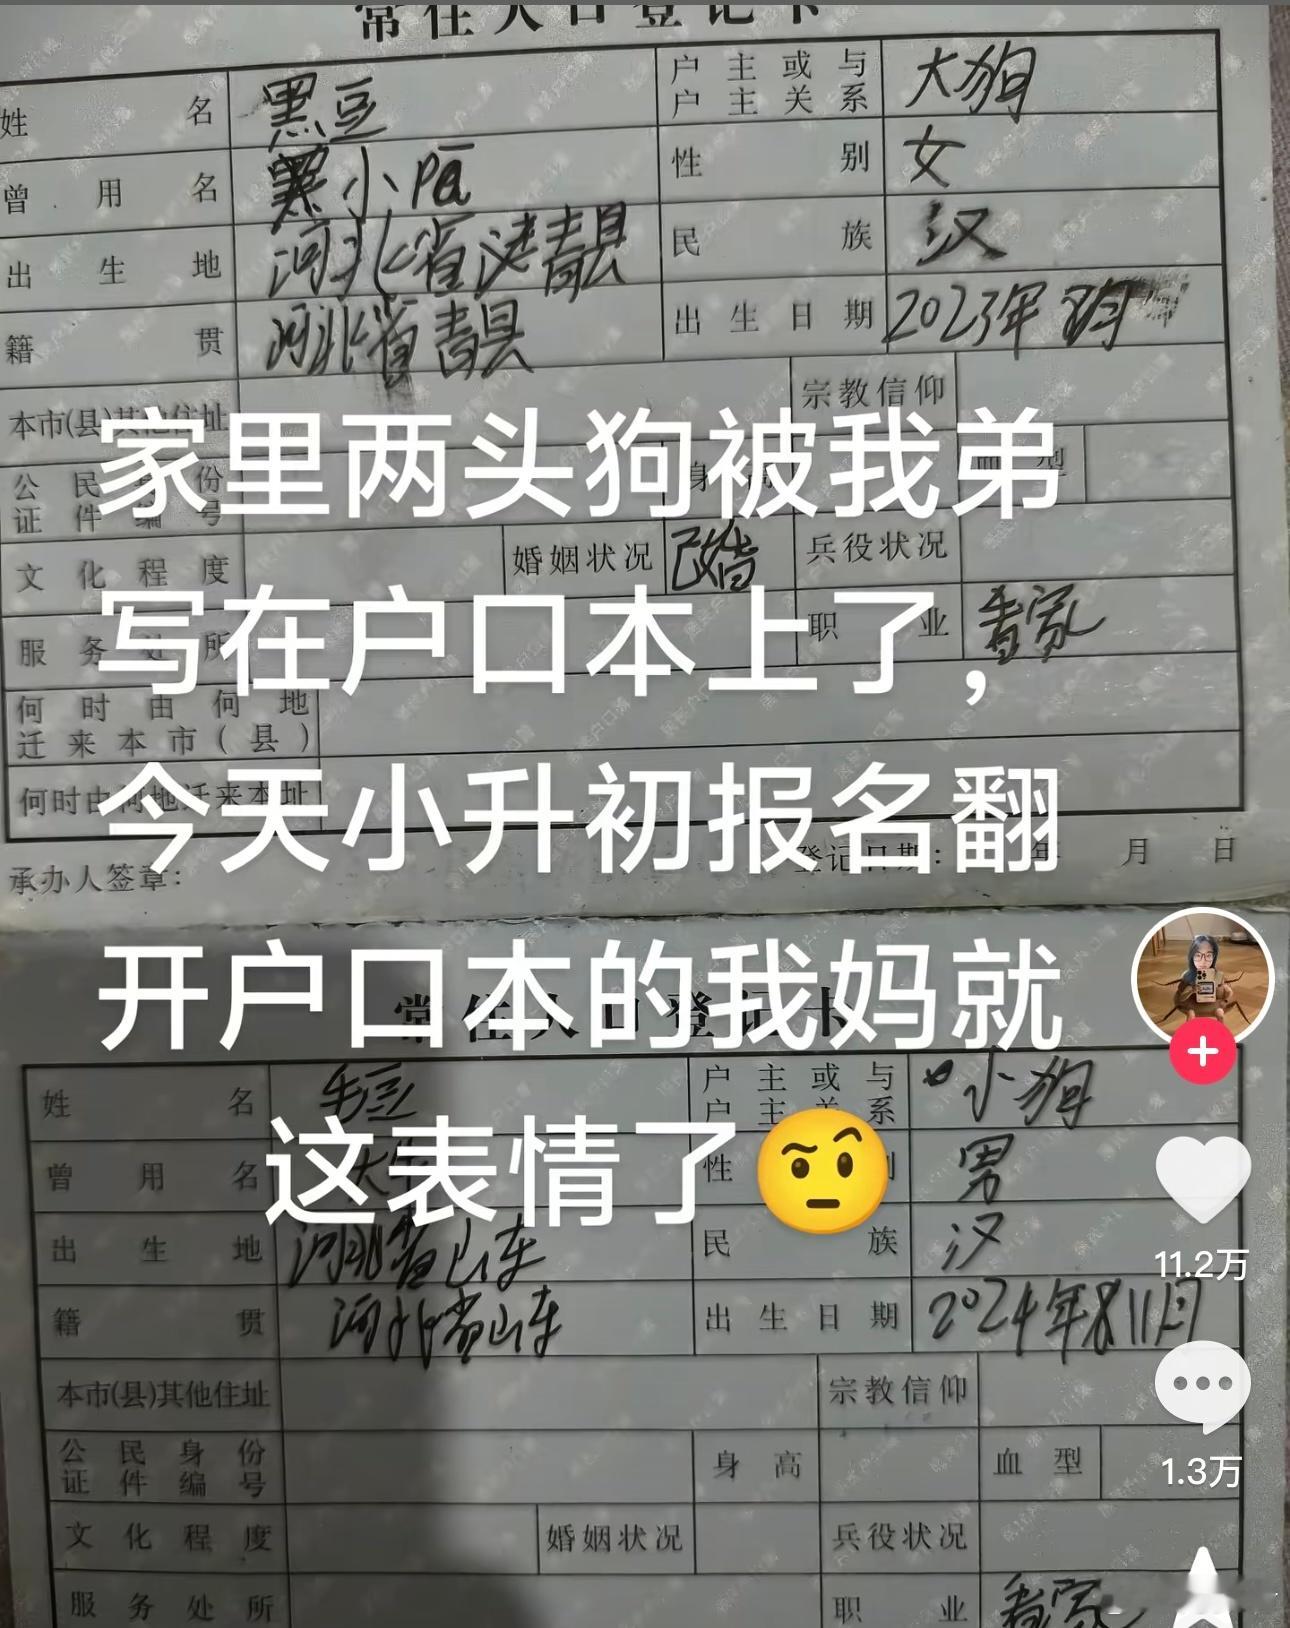 常住人口登记卡
姓名 黑豆 户主或与户主关系 大狗
曾用名 黑小 性别 女
出生地 河北省 青县 民族 汉
籍贯 河北省青县 出生日期 2023年 月
本市(县)其他住址 宗教信仰
公民身份证件编号 身高 血型
文化程度 婚姻状况 已婚 兵役状况
服务处所 职业 看家
何时由何地迁来本市(县)
何时由何地迁来本址
承办人签章: 登记日期: 年 月 日
家里两头狗被我弟
写在户口本上了，
今天小升初报名翻
开户口本的我妈就
这表情了
常住人口登记卡
姓名 毛豆 户主或与户主关系 小狗
曾用名 大 性别 男
出生地 河北省山东 民族 汉
籍贯 河北省山东 出生日期 2024年 11月
本市(县)其他住址 宗教信仰
公民身份证件编号 身高 血型
文化程度 婚姻状况 兵役状况
服务处所 职业 看家
11.2万
1.3万